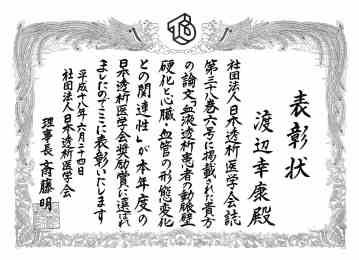 表彰状
渡辺幸康殿
社団法人日本透析医学会誌
第三十八巻六号に掲載された貴方
の論文「血液透析患者の動脈壁
硬化と心臓・血管の形態変化
との関連性」が本年度の
日本透析医学会奨励賞に選ばれ
ましたのでここに表彰いたします
平成十八年六月二十四日
社団法人日本透析医学会
理事長 斎藤明